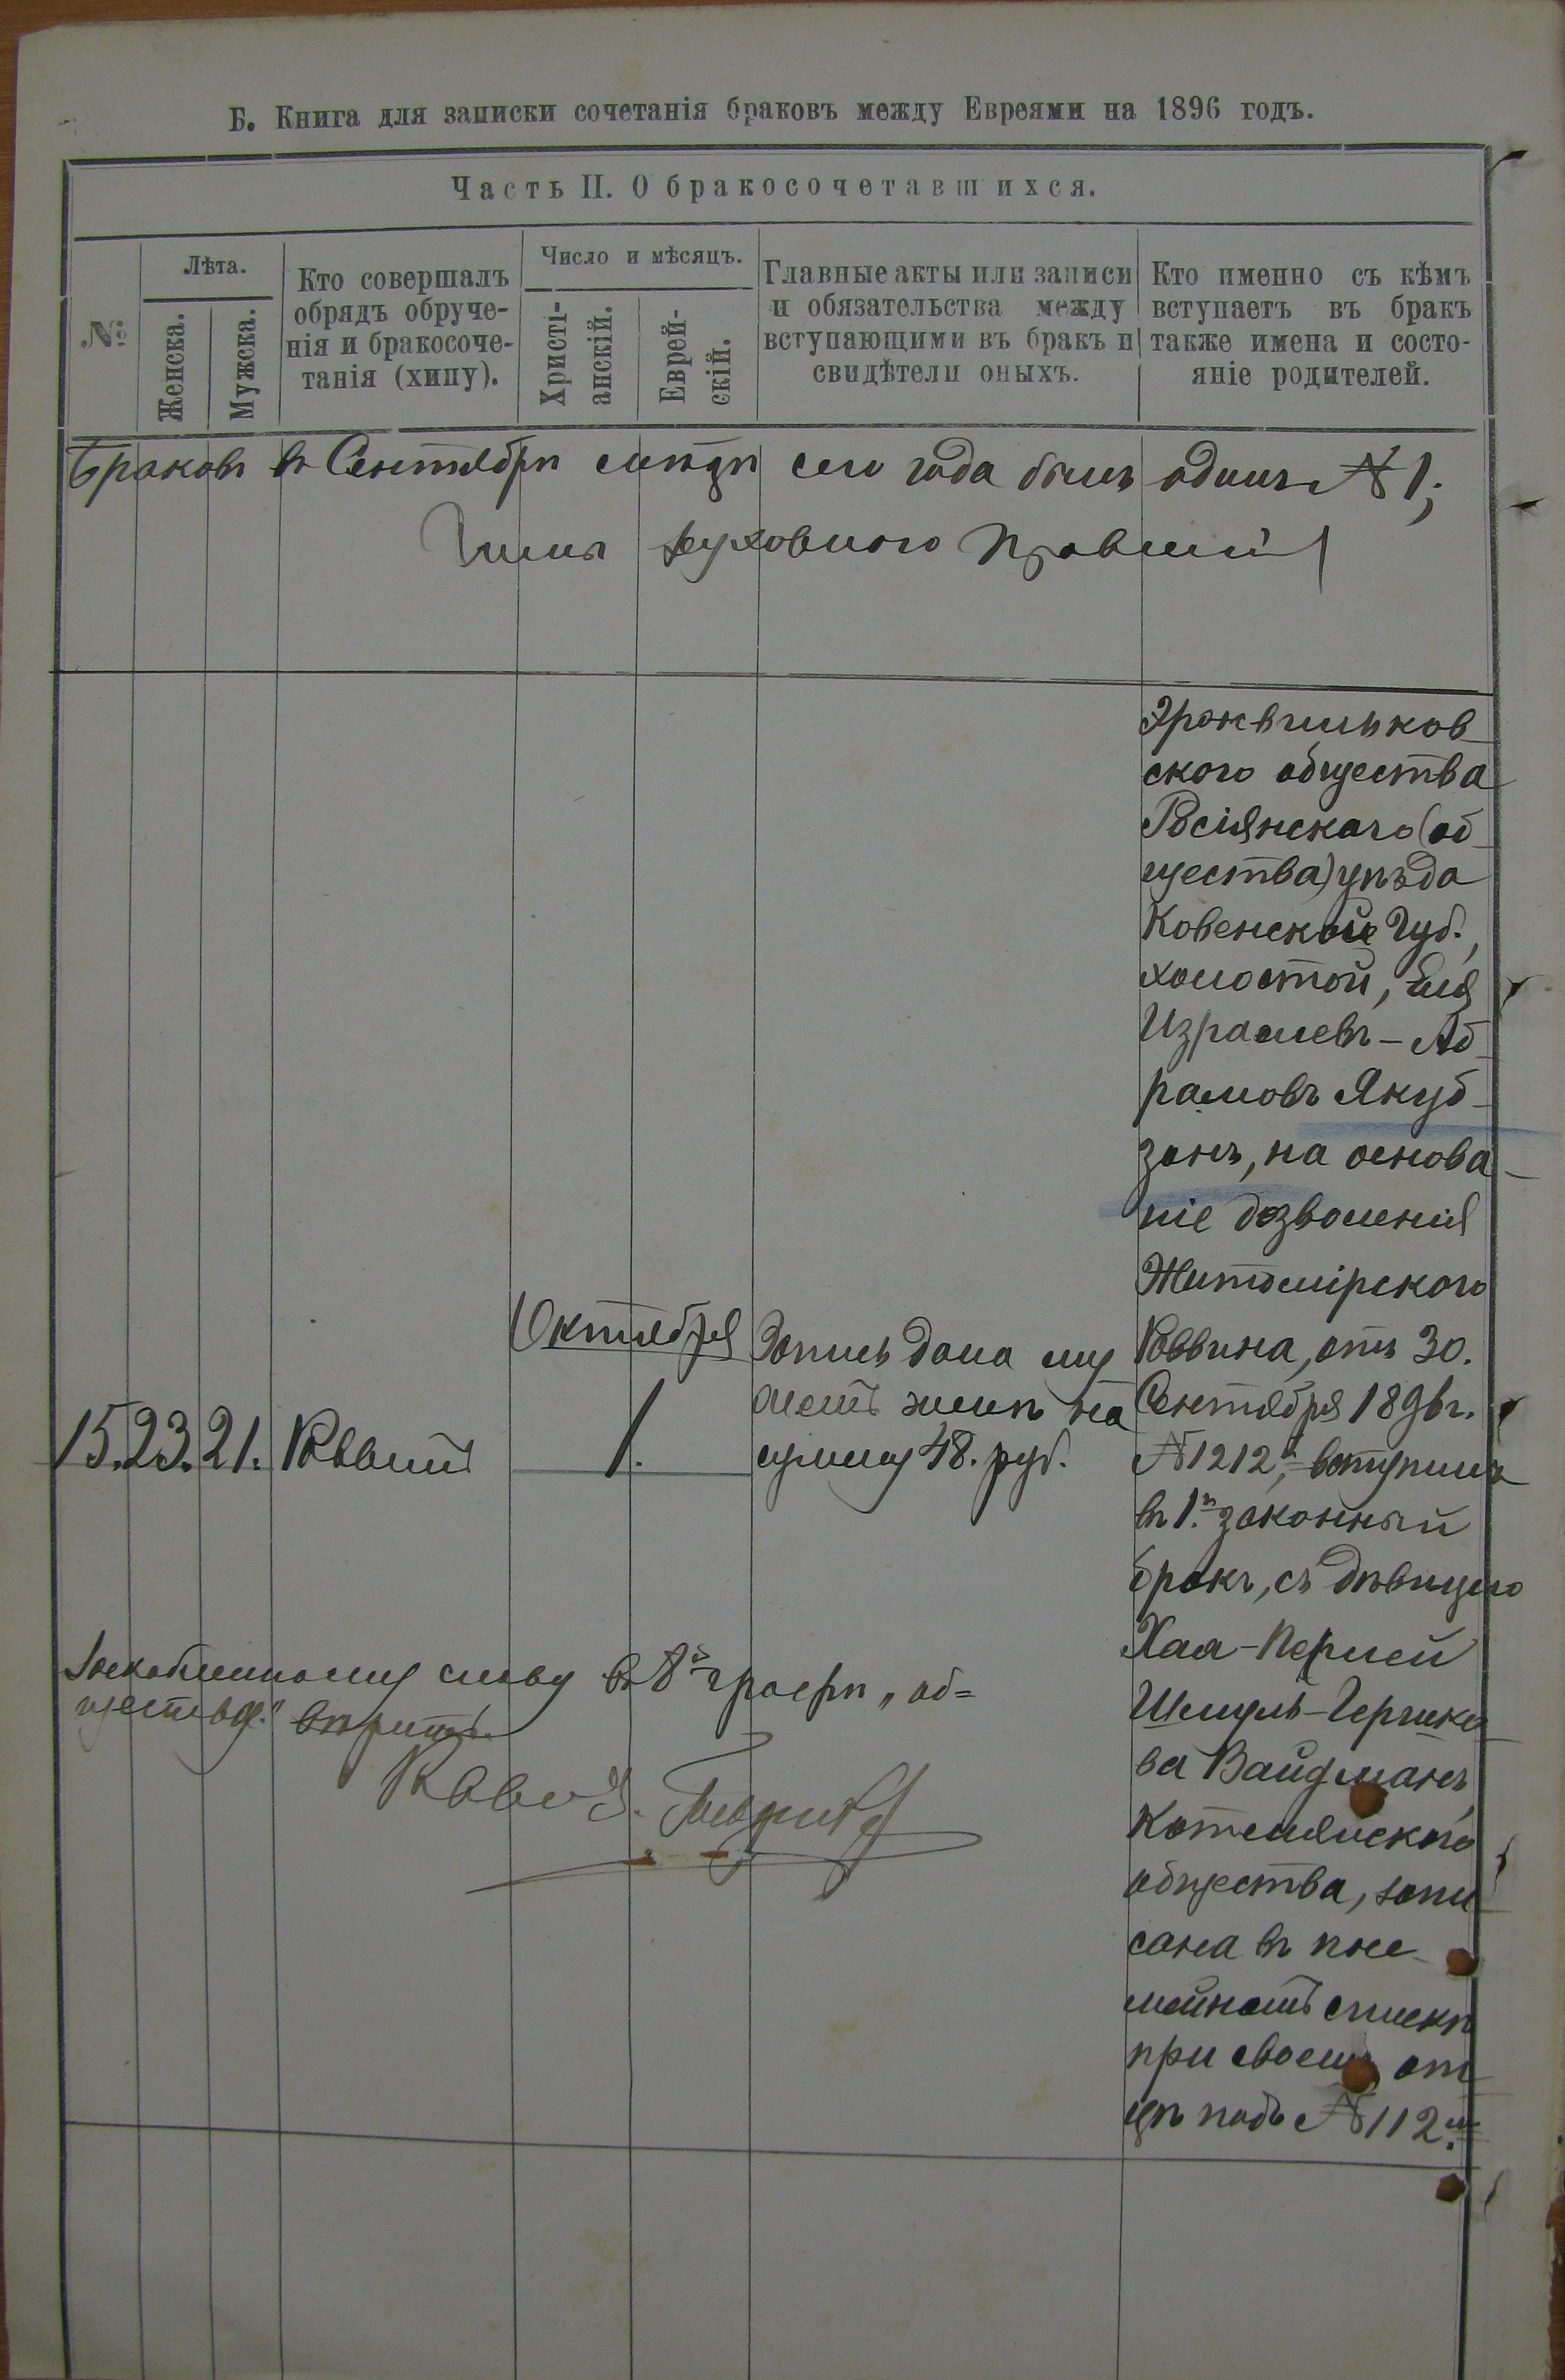 Б. Книга для записки сочетанія браковъ между Евреями на 1896 годъ.
Часть II. О бракосочетавшихся.
№
Лѣта.
Женска.
Мужска.
Кто совершалъ
обрядъ обруче-
нія и бракосоче-
танія (хипу).
Число и мѣсяцъ.
Христі-
анскій.
Еврей-
скій.
Главные акты или записи
и обязательства между
вступающими въ бракъ и
свидѣтели оныхъ.
Кто именно съ кѣмъ
вступаетъ въ бракъ
также имена и состо-
яніе родителей.
Браковъ въ Сентябрѣ мѣсяцѣ сего года былъ одинъ № 1;
Духовного Правлені
15. 23. 21. Раввинъ
Октября
1.
Запись дана му
жемъ женѣ на
сумму 48. руб.
ского общества
Росіянскаго (об
щества) уѣзда
Ковенской Губ.,
холостой,
Израилевъ-Аб
рамовъ Якуб-
зонъ, на основа
ніе дозволенія
Житомірского
Раввина, отъ 30.
Сентября 1896г.
№ 1212, вступилъ
въ 1й законный
бракъ, съ дѣвицею
Хая-Перлей
Шмуль-Гершко
ва Вайдманъ,
общества, запи
сана въ
списк
при своемъ от
цѣ подъ № 112.
слову въ 8й графѣ „об=
ществ" вѣрить.